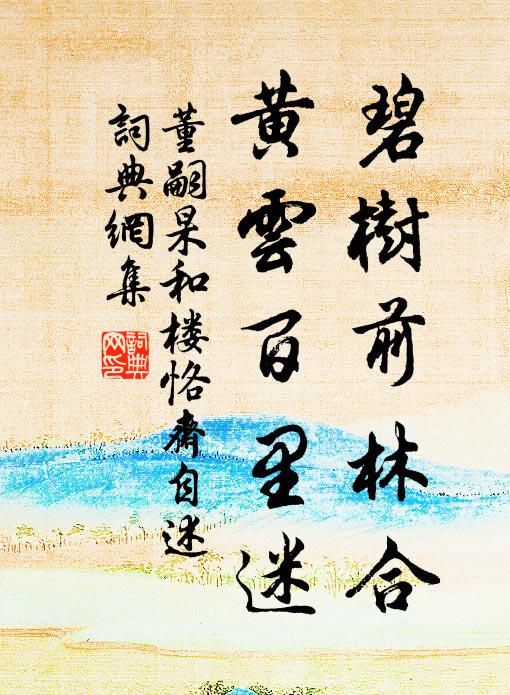 碧樹前林合
黃雲百里迷
董嗣杲和楼恪齋自述
詞典網集
詞典
网印